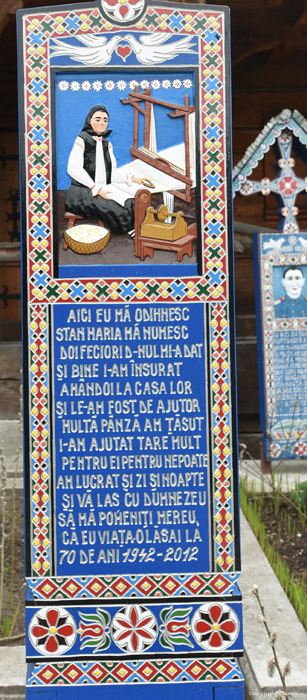 AICI EU MĂ ODIHNESC
STAN MARIA MĂ NUMESC
DOI FECIORI D-NUL MI-A DAT
ȘI BINE I-AM ÎNSURAT
AMÂNDOI LA CASA LOR
ȘI LE-AM FOST DE AJUTOR
MULTĂ PÂNZĂ AM ȚĂSUT
I-AM AJUTAT TARE MULT
PENTRU EI PENTRU NEPOATE
AM LUCRAT ȘI ZI ȘI NOAPTE
ȘI VĂ LAS CU DUMNEZEU
SĂ MĂ POMENIȚI MEREU,
CĂ EU VIAȚA O LĂSAI LA
70 DE ANI 1942-2012